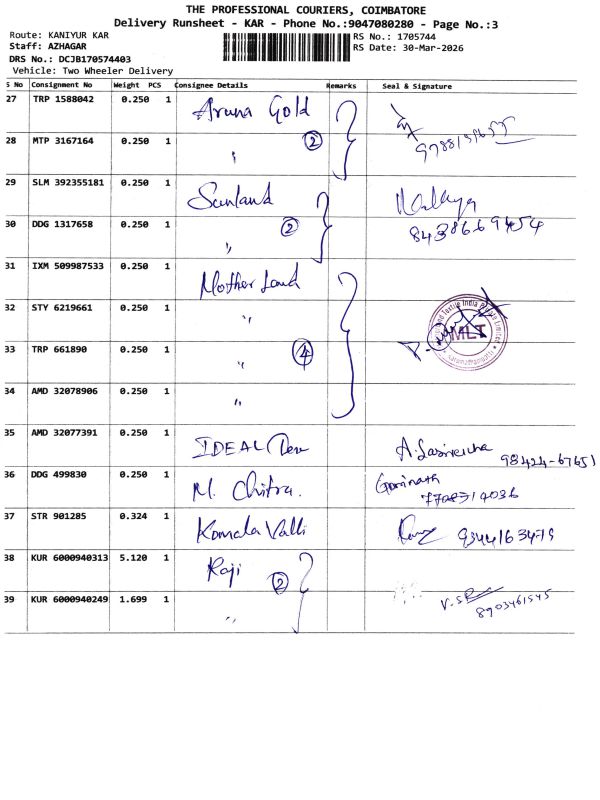 THE PROFESSIONAL COURIERS, COIMBATORE
Delivery Runsheet - KAR - Phone No.:9047080280 - Page No.:3
Route: KANIYUR KAR
RS No.: 1705744
Staff: AZHAGAR
RS Date: 30-Mar-2026
DRS No.: DCJB170574403
Vehicle: Two Wheeler Delivery
S No Consignment No Weight PCS Consignee Details Remarks Seal & Signature
27 TRP 1588042 0.250 1 Aruna Gold
28 MTP 3167164 0.250 1 " 2
29 SLM 392355181 0.250 1 Sunland
30 DDG 1317658 0.250 1 " 2 8438669454
31 IXM 509987533 0.250 1 Mother Land
32 STY 6219661 0.250 1 "
33 TRP 661890 0.250 1 " 4 MLT
34 AMD 32078906 0.250 1 "
35 AMD 32077391 0.250 1 IDEAL 98424-67651
36 DDG 499830 0.250 1 M. Chitra. Gopinath
37 STR 901285 0.324 1 Komala Valli
38 KUR 6000940313 5.120 1 Raji 2
39 KUR 6000940249 1.699 1 " 8903461545